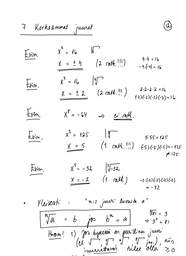 7 Korkeammat juuret
②
Esim. x² = 16 √
x = ±4 (2 ratk. !!!)
4·4 = 16
-4·(-4) = 16
Esim. x⁴ = 16 ⁴√
x = ±2 (2 ratk. !!!)
2·2·2·2 = 16
(-2)·(-2)·(-2)·(-2) = 16
Esim. x⁴ = -64 → ei ratk.
Esim. x³ = 125 ³√
x = 5 (1 ratk.)
5·5·5 = 125
(-5)·(-5)·(-5) = -125
≠ 125
Esim. x⁵ = -32 ⁵√-32
x = -2 (1 ratk.)
(-2)·(-2)·(-2)·(-2)·(-2)
= -32
• Yleisesti: "n:s juuri luvusta a"
ⁿ√a = b jos bⁿ = a
⁴√81 = 3
→ 3⁴ = 81
Huom! 1) jos kyseessä on parillinen juuri
juurrettavan tulee olla ≥ 0